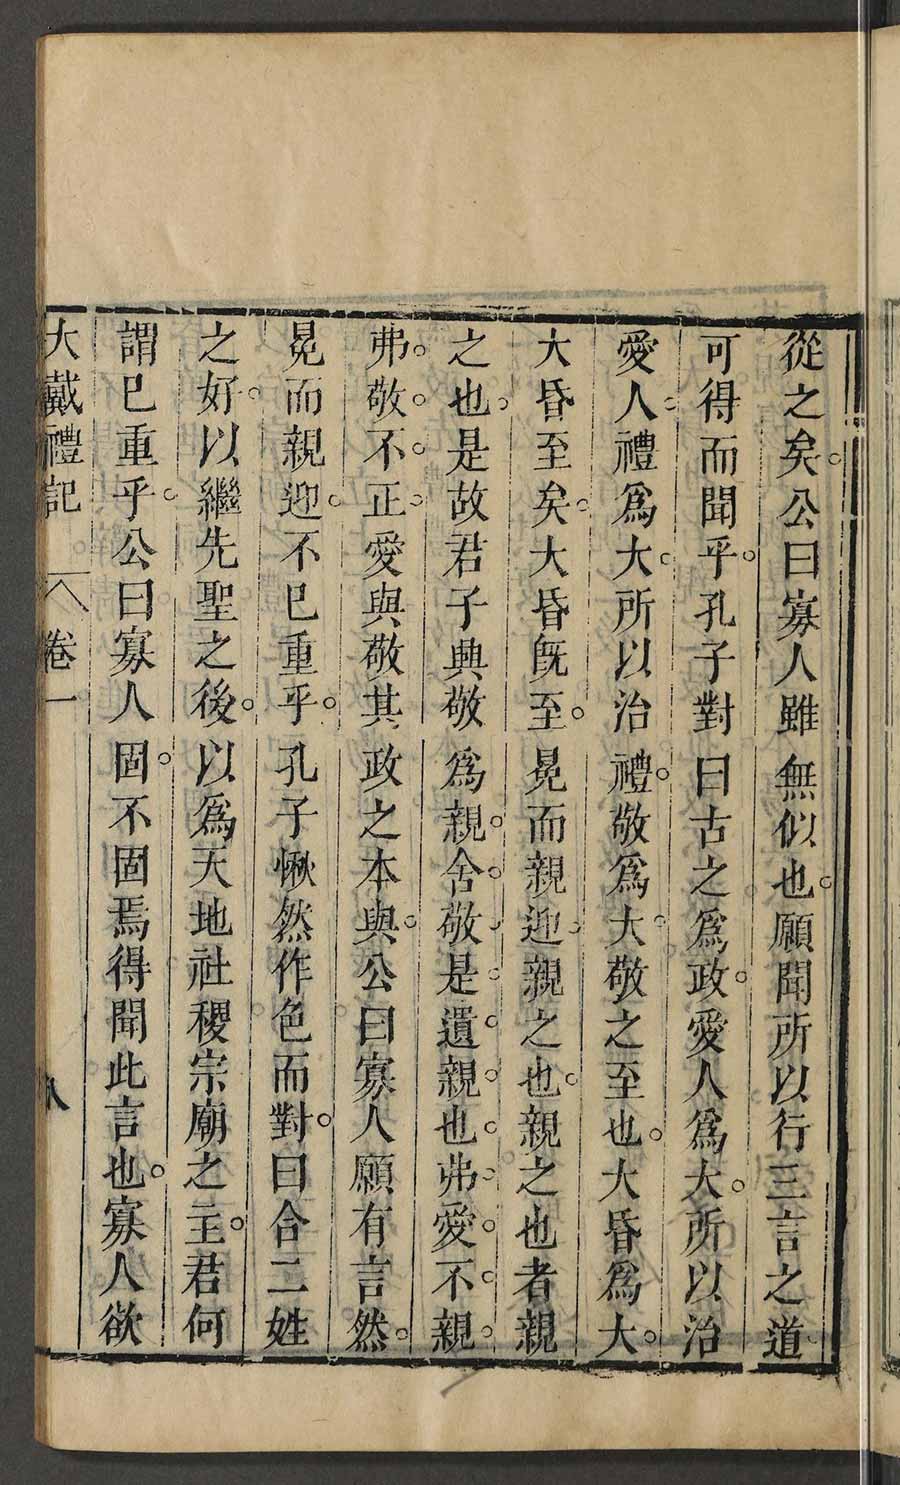 從之矣。公曰寡人雖無似也。願聞所以行三言之道
可得而聞乎。孔子對曰古之爲政。愛人爲大。所以治
愛人。禮爲大。所以治禮。敬爲大。敬之至也。大昏爲大。
大昏至矣。大昏旣至。冕而親迎。親之也。親之也者親
之也。是故君子興敬爲親。舍敬。是。遺。親。也。弗。愛。不。親。
弗。敬。不。正。愛與敬其政之本與。公曰寡人願有言然。
冕而親迎。不已重乎。孔子愀然作色而對。曰合二姓
之好。以繼先聖之後。以爲天地社稷宗廟之主。君何
謂已重乎。公曰寡人固。不固焉得聞此言也。寡人欲
大戴禮記 卷一 八